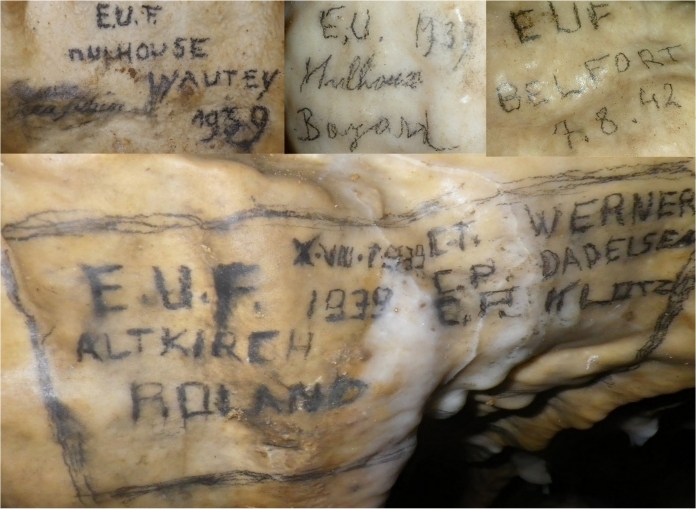 E.U.F.
MULHOUSE
WAUTEY
1939
E.U. 1939
Mulhouse
Bazard
EUF
BELFORT
7.8.42
E.U.F.
ALTKIRCH
ROLAND
X.VIII.1939
1939
E.T. WERNER
E.P. DADELSEN
E.P. KLOTZ